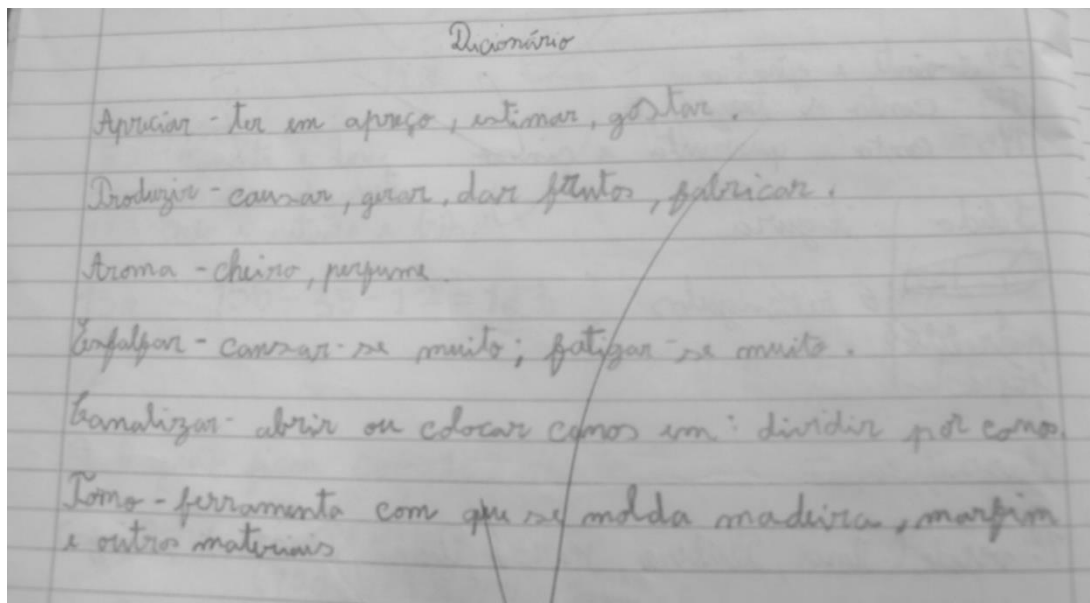 Dicionário
Apreciar - ter em apreço, estimar, gostar.
Produzir - causar, gerar, dar frutos, fabricar.
Aroma - cheiro, perfume.
Esfalfar - cansar-se muito; fatigar-se muito.
Canalizar - abrir ou colocar canos em: dividir por canos.
Torno - ferramenta com que se molda madeira, marfim
e outros materiais